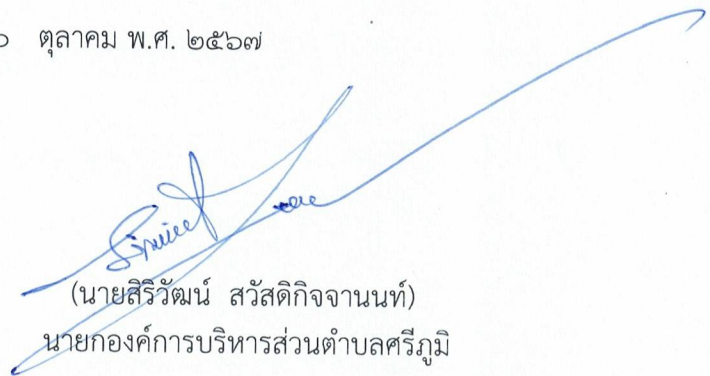 ตุลาคม พ.ศ. ๒๕๖๗
(นายสิริวัฒน์ สวัสดิกิจจานนท์)
นายกองค์การบริหารส่วนตำบลศรีภูมิ